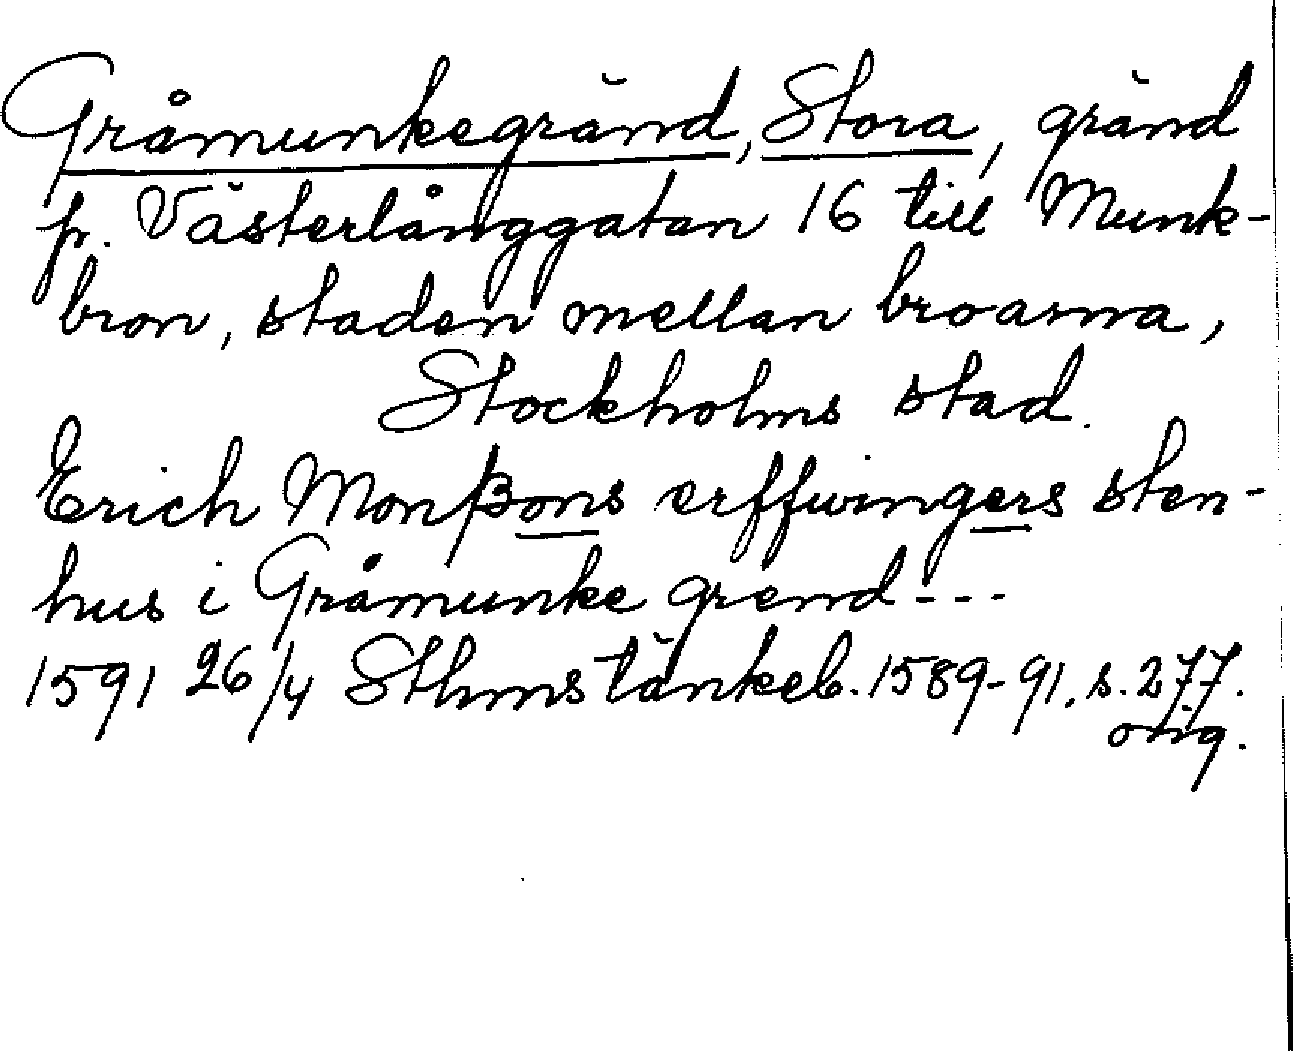 Gråmunkegränd, Stora, gränd
fr. Västerlånggatan 16 till Munk-
bron, staden mellan broarna,
Stockholms stad.
Erich Monßons erffwingers sten-
hus i Gråmunke grend - - -
1591 26/4 Sthms tänkeb. 1589-91. s. 277.
orig.